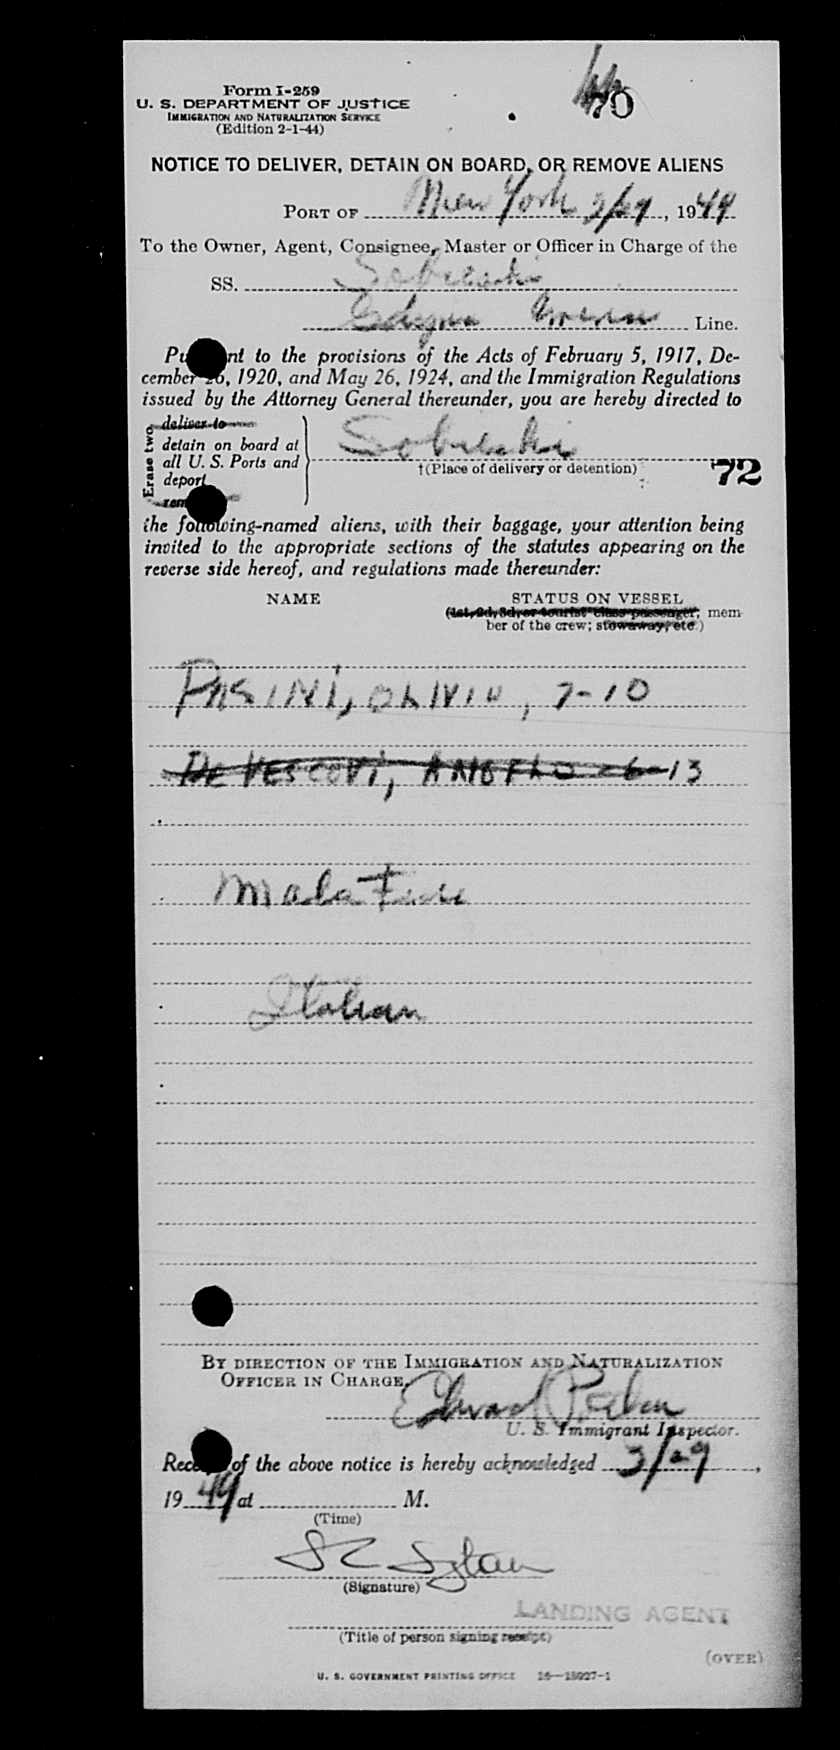 Form I-259
70
U. S. DEPARTMENT OF JUSTICE
IMMIGRATION AND NATURALIZATION SERVICE
(Edition 2-1-44)
NOTICE TO DELIVER, DETAIN ON BOARD, OR REMOVE ALIENS
PORT OF New York 3/29, 1949
To the Owner, Agent, Consignee, Master or Officer in Charge of the
SS. Sobieski
Gdynia Line.
nt to the provisions of the Acts of February 5, 1917, De-
cember 26, 1920, and May 26, 1924, and the Immigration Regulations
issued by the Attorney General thereunder, you are hereby directed to
Erase two
deliver to
detain on board at
all U. S. Ports and
deport
Sobieski
†(Place of delivery or detention)
72
the following-named aliens, with their baggage, your attention being
invited to the appropriate sections of the statutes appearing on the
reverse side hereof, and regulations made thereunder:
NAME STATUS ON VESSEL
(1st, 2d, 3d, or tourist class passenger; mem-
ber of the crew; stowaway, etc.)
PASINI, OLIVIO, 7-10
DE VESCOVI, ANGELO 6-13
Mala Fide
Italian
BY DIRECTION OF THE IMMIGRATION AND NATURALIZATION
OFFICER IN CHARGE,
Edward
U. S. Immigrant Inspector.
of the above notice is hereby acknowledged 3/29,
1949 at M.
(Time)
(Signature)
LANDING AGENT
(Title of person signing receipt)
(OVER)
U. S. GOVERNMENT PRINTING OFFICE 16—18927-1